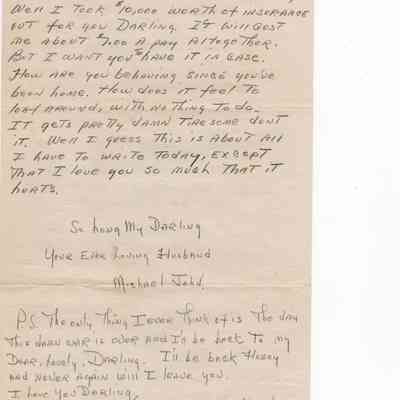 Well I took $10,000 worth of insurance
out for you Darling. It will cost
me about $7.00 a pay altogether.
But I want you to have it in case.
How are you behaving since you've
been home. How does it feel to
loaf around, with nothing to do.
It gets pretty damn tiresome dont
it. Well I guess this is about all
I have to write today, except
that I love you so much that it
hurts.
So Long My Darling
Your Ever Loving Husband
Michael John.
P.S. The only thing I ever think of is the day
this damn war is over and I'll be back to my
Dear, Lovely, Darling. I'll be back Honey
and never again will I leave you.
I love You Darling,